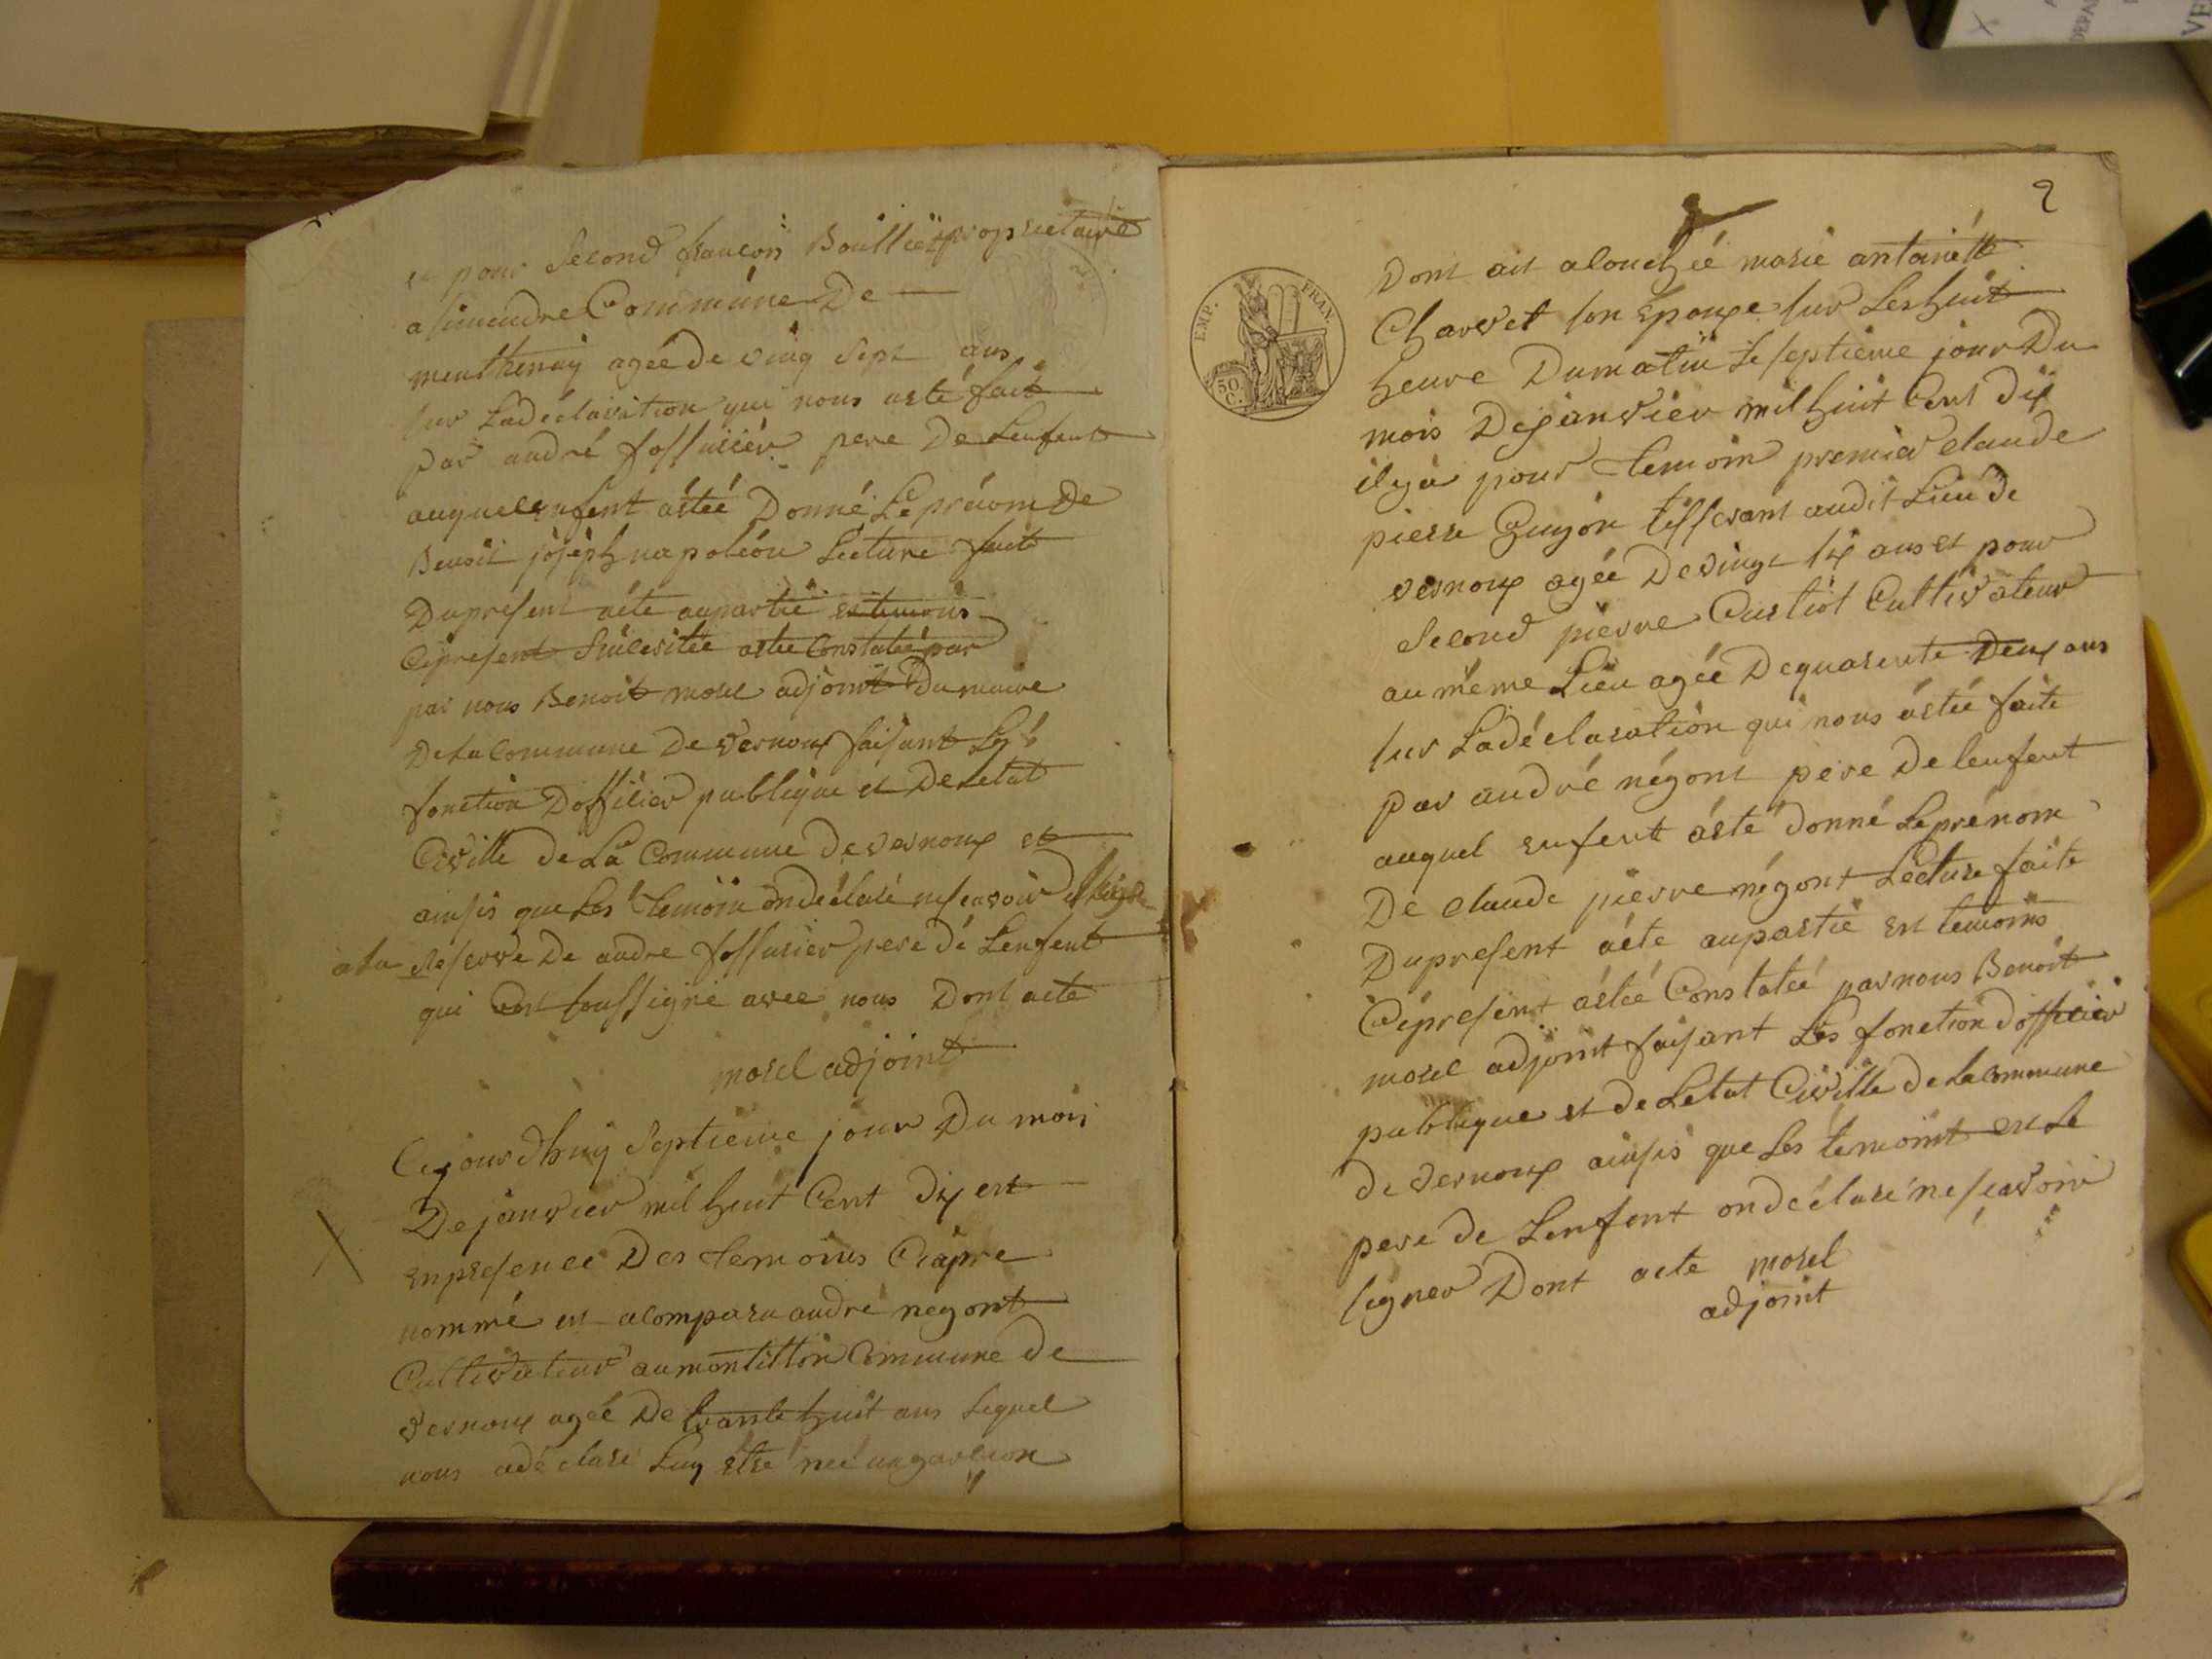 et pour Second francois Boullier propriétaire
a simandre Commúne De
menthenay agée de ving Sept ans
sur La déclaration qui nous astè fait
par andré fossurier pere De Lenfent
auquel enfent astéé Donné Le prénom De
Benoit joseph napoléon Lecture fait
Du présent acte aupartie et temoins
Ciprésent astee Constatée par
par nous Benoit morel adjoint Du maire
De La Commune De vernoux faisant Les
fonction Dofficier publique et De Letat
Civille de La Commune De vernoux et
ainsis que Les temoin on déclaré ne scavoir signé
a la Reserve De andre fossurier pere dé Lenfent
qui est soussigné avec nous Dont acte
morel adjoint
Cejourdhuy Septieme jour Du mois
De janvier mil huit Cent dix et
en presence Des temoins Ciapre
nommé est a comparu andré negont
Cultivateur au montillon Commune de
vernoux agée De trante huit ans Lequel
nous adéclaré Luy etre née ungarcion
2
Dont ait a Couchéé marie antoinétte
Charvet son Epouxe sur Les huit
heure Du matin Le septieme jour Du
mois De janvier mil huit Cent dix
il y a pour temoin premier claude
pierre Guyon tisserant au dit Lieu de
vernoux agée De vingt six ans et pour
Second pierre Custiot Cultivateur
au même Lieu agée De quarente Deux ans
sur La déclaration qui nous astée faite
par andrè négont pere De lenfent
auquel enfent asté donné Le prénom
De claude pierre négont Lecture faite
Du present acte aupartie est temoins
Cipresent astéé Constatéé par nous Benoit
morel adjoint faisant Les fonction dofficier
publique et de Letat Civille de La Commune
de vernoux ainsis que Les temoint et Le
pere de Lenfent on déclaré ne scavoir
signer Dont acte morel
adjoint
EMP. FRAN.
50
C.
DEPA
VE